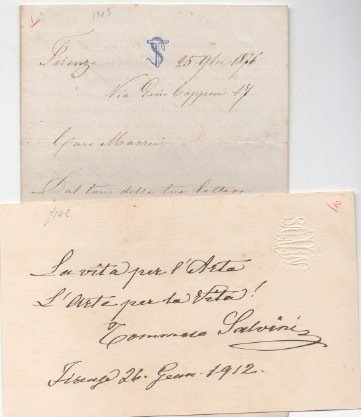 Firenze 25 9bre 1876
Via Gino Capponi 17.
Caro
Dal tono della tua lettera
La vita per l'Arte
L'Arte per la Vita!
Tommaso Salvini
Firenze 26. Genn. 1912.